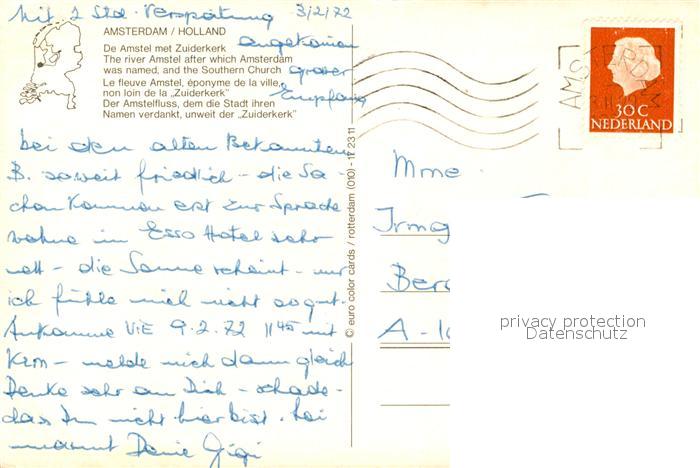 Mit 2 Std. Verspätung 3/2/72
AMSTERDAM / HOLLAND
angekommen
De Amstel met Zuiderkerk
The river Amstel after which Amsterdam
was named, and the Southern Church
großer
Le fleuve Amstel, éponyme de la ville,
non loin de la „Zuiderkerk"
Empfang
Der Amstelfluss, dem die Stadt ihren
Namen verdankt, unweit der „Zuiderkerk"
bei den alten Bekannten
B. soweit friedlich – die Sa-
chen kommen erst zur Sprache
wohne im Esso Hotel sehr
nett – die Sonne scheint – nur
ich fühle mich nicht so gut.
Ankomme VIE 9.2.72 11 45 mit
KLM – melde mich dann gleich
Denke sehr an Dich – schade –
das Du nicht hier bist.
Deine Gigi
© euro color cards / rotterdam (010) - 17 23 11
AMSTERDAM
30 C
NEDERLAND
Mme
Irmg
Ber
A-10
privacy protection
Datenschutz